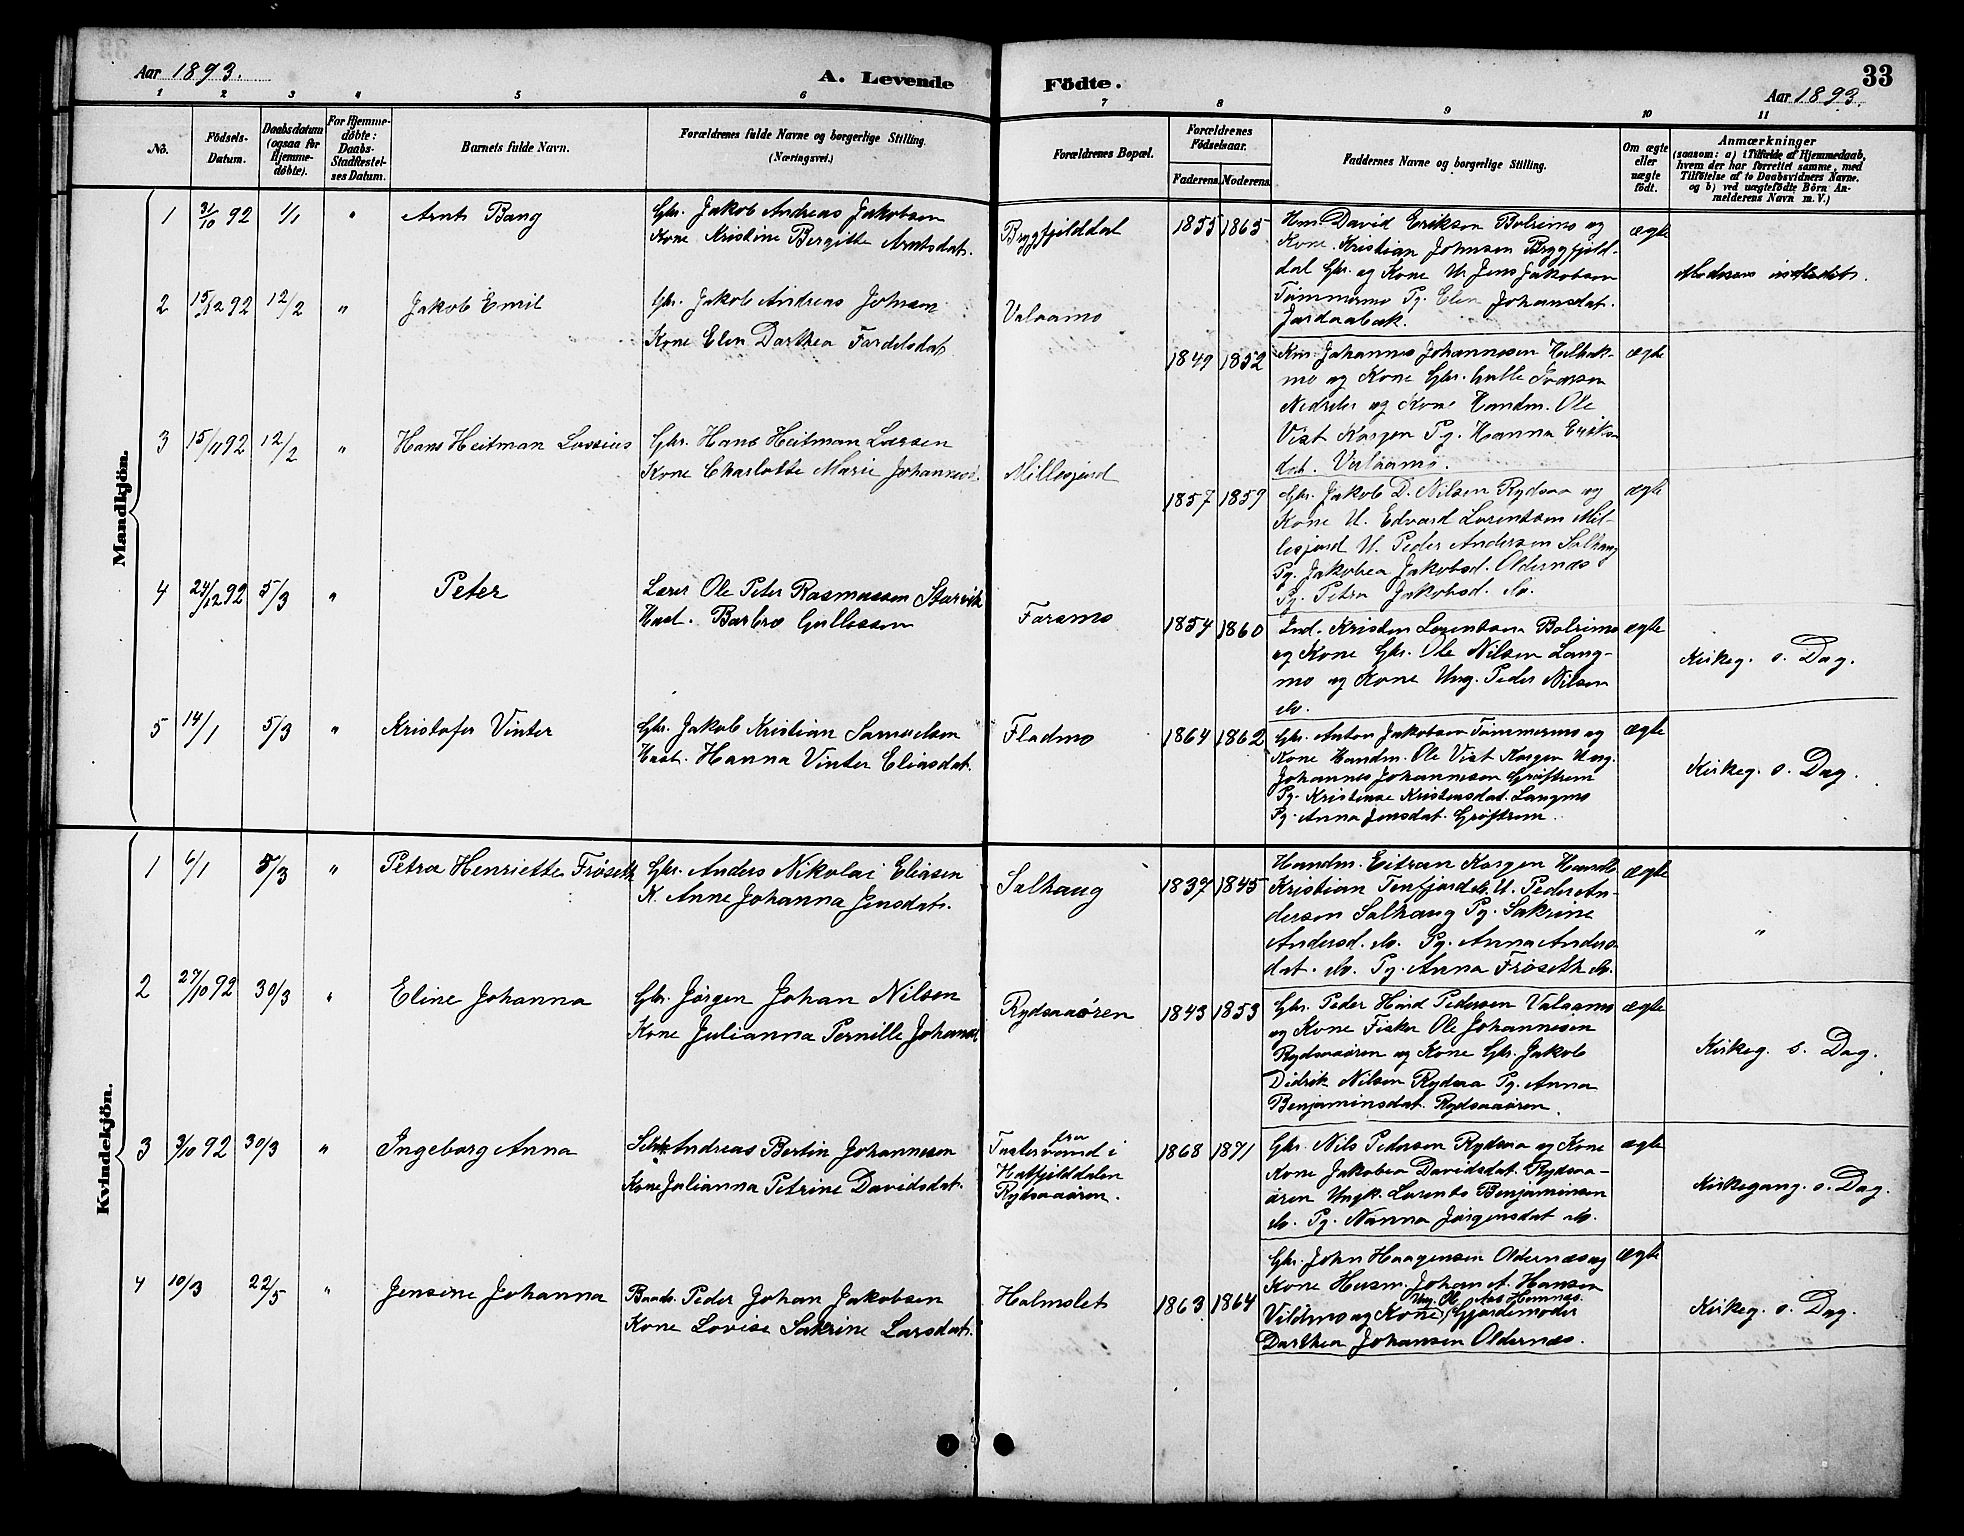 Aar 1893.
A. Levende
Födte.
33
Aar 1893.
1 2 3 4 5 6 7 8 9 10 11
No.
Födsels-
Datum.
Daabsdatum
(ogsaa for
Hjemme-
döbte).
For Hjemme-
döbte:
Daabs-
Stadfæstel-
ses Datum.
Barnets fulde Navn.
Forældrenes fulde Navne og borgerlige Stilling.
(Næringsvei.)
Forældrenes Bopæl.
Forældrenes
Födselsaar.
Faderens. Moderens.
Faddernes Navne og borgerlige Stilling.
Om ægte
eller
uægte
födt.
Anmærkninger
(saasom: a) i Tilfælde af Hjemmedaab,
hvem der har forrettet samme, med
Tilföielse af to Daabsvidners Navne.
og b) ved uægtefödte Börn An-
melderens Navn m. V.)
Mandkjön.
1 31/10 92 1/1 " Arnt Bang
Gbr. Jakob Andreas Jakobsen
Kone Kristine Bergitte Arntsdat.
Bryggfjelddal
1855 1865
Hm. David Erikson Bolermo og
Kone. Kristian Johnsen Bryggfjeld-
dal Gbr. og Kone U. Jens Jakobsen
Tömmermo Pg. Elen Johansdat.
Jordaabæk.
ægte
Moderens indledet.
2 15/12 92 12/2 " Jakob Emil
Gbr. Jakob Andreas Johnsen
Kone Elen Darthea Fardelsdat
Valaamo
1849 1852
Johannes Johannesen
mo og Kone Gbr. Gulle Ivarsen
Nedreler og Kone Handm. Ole
Vist Korgen Pg. Hanna Eriks-
dat. Valaamo.
ægte
3 15/11 92 12/2 " Hans Heitman Lossius
Gbr. Hans Heitman Larsen
Kone Charlotte Marie Johannesd.
Millesjord
1857 1859
Gbr. Jakob D. Nilsen Rydsaa og
Kone U. Edvard Lorentsen Mil-
lesjord U. Peder Andersen Salhaug
Pg. Jakobea Jakobsd. Oldernæs
Pg. Petra Jakobsd. do.
ægte
4 24/12 92 5/3 " Peter
Lærer Ole Peter Rasmussen Storvik
Hust. Barbro Gullessen
Farsmo
1854 1860
Ind. Kristen Lorentsen Bolermo
og Kone Gbr. Ole Nilsen Lang-
mo og Kone Ung. Peder Nilsen
do.
ægte
Kirkeg. s. Dag.
5 14/1 5/3 " Kristofer Vinter
Gbr. Jakob Kristian Samuelsen
Hust. Hanna Vinter Eliasdat.
Fladmo
1864 1862
Gbr. Anton Jakobsen Tömmermo og
Kone Handm. Ole Vist Korgen Ung.
Johannes Johannesen Gröftrem
Pg. Kristense Kristensdat. Langmo
Pg. Anna Jensdat. Gröftrem.
ægte
Kirkeg. s. Dag.
Kvindekjön.
1 6/1 5/3 " Petra Henriette Fröseth
Gbr. Anders Nikolai Eliasen
K. Anne Johanna Jensdat.
Salhaug
1837 1845
Handm. Eitran Korgen Handb.
Kristian Tenfjord do. U. Peder An-
dersen Salhaug Pg. Sakrine
Andersd. do. Pg. Anna Anders-
dat. do. Pg. Anna Fröseth do.
ægte
"
2 27/10 92 30/3 " Eline Johanna
Gbr. Jörgen Johan Nilsen
Kone Julianna Pernille Johansd.
Rydsaaören
1843 1853
Gbr. Peder Hind Pedersen Valaamo
og Kone Fisker Ole Johannesen
Rydsaaören og Kone Gbr. Jakob
Didrik Nilsen Rydsaa Pg. Anna
Benjaminsdat. Rydsaaören.
ægte
Kirkeg. s. Dag.
3 3/10 92 30/3 " Ingeborg Anna
Andreas Bertin Johannesen
Kone Julianna Petrine Davidsdat.
fra
Tustervand i
Hatfjelddalen
Rydsaaören.
1868 1871
Gbr. Nils Pedersen Rydsaa og Kone
Kone Jakobea Davidsdat. Rydsaa-
ören Ungk. Lorents Benjaminsen
do. Pg. Nanna Jörgensdat do.
ægte
Kirkegang. s. Dag.
4 10/3 22/5 " Jensine Johanna
Baads. Peder Johan Jakobsen
Kone Lovise Sakrine Larsdat.
Holmslet
1863 1864
Gbr. John Haagensen Oldernæs og
Kone Husm. Johan A. Hansen
Ung. Ole Aas Hemnes.
Vildmo og Kone, Gjordemoder
Darthea Johansen Oldernæs.
ægte
Kirkeg. s. Dag.